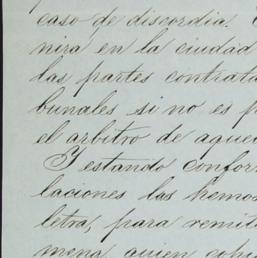 caso de discordia.
nira en la ciudad
las partes contrata
bunales si no es p
el arbitro de aque
Y estando confor
laciones las hemos
letra, para remit
mena quien